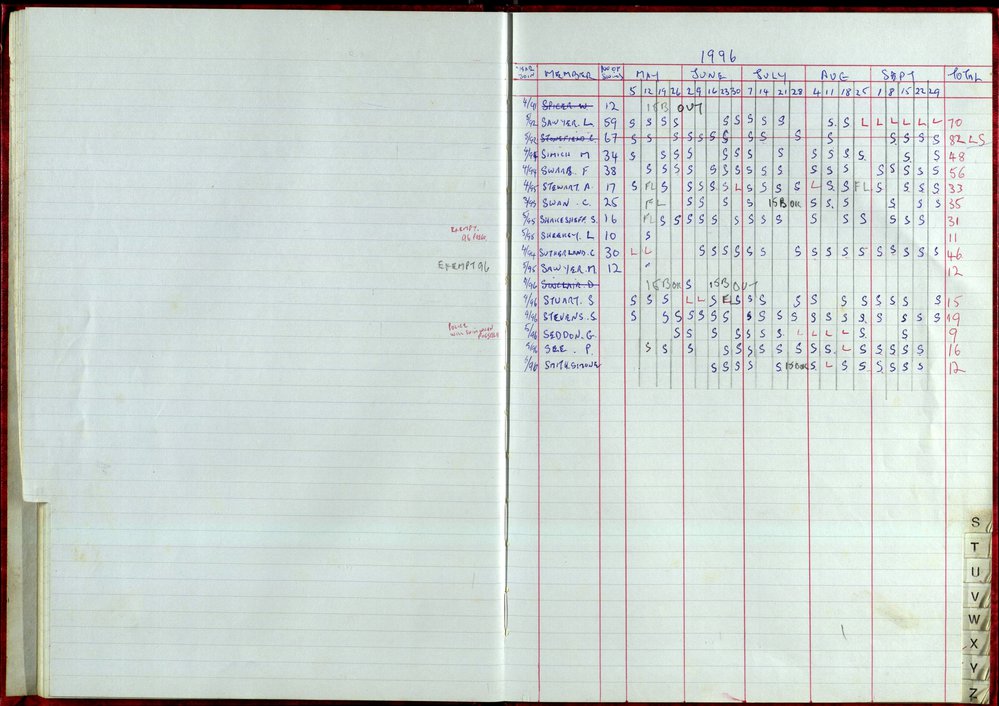 1996
YEAR JOIN MEMBER NO OF SWIMS MAY JUNE JULY AUG SEPT TOTAL
5 12 19 26 2 9 16 23 30 7 14 21 28 4 11 18 25 1 8 15 22 29
4/91 SPICER W 12 ISB OUT
5/92 SAWYER. L. 59 S S S S S S S S S S S S L L L L L L 70
5/92 67 S S S S S S S S S S S S S S S 82 LS
SIMICH M 34 S S S S S S S S S S S S S S 48
4/94 SWAAB. F 38 S S S S S S S S S S S S S S S S S S 56
4/95 STEWART. A. 17 S FL S S S S S L S S S S L S S FL S S S S S 33
SWAN. C. 25 FL S S S S ISB OK S S S S S S 35
5/95 SHAKESHEFF. S. 16 FL S S S S S S S S S S S S S S S 31
EXEMPT.
5/95 SHEEHEY. L 10 S 11
4/94 SUTHERLAND. C 30 L L S S S S S S S S S S S S S S S S 46
EXEMPT 96 5/95 SAWYER. M 12 12
SINCLAIR. D ISB OK S ISB OUT
4/96 STUART. S S S S L L S FL S S S S S S S S S S S S 15
4/96 STEVENS. S. S S S S S S S S S S S S S S S S S S S S 19
5/96 SEDDON. G. S S S S S S S L L L L S S 9
5/96 SEE. P. S S S S S S S S S S S L S S S S S 16
SMITH. SIMONE S S S S S ISB OK S L S S S S S S 12
S
T
U
V
W
X
Y
Z